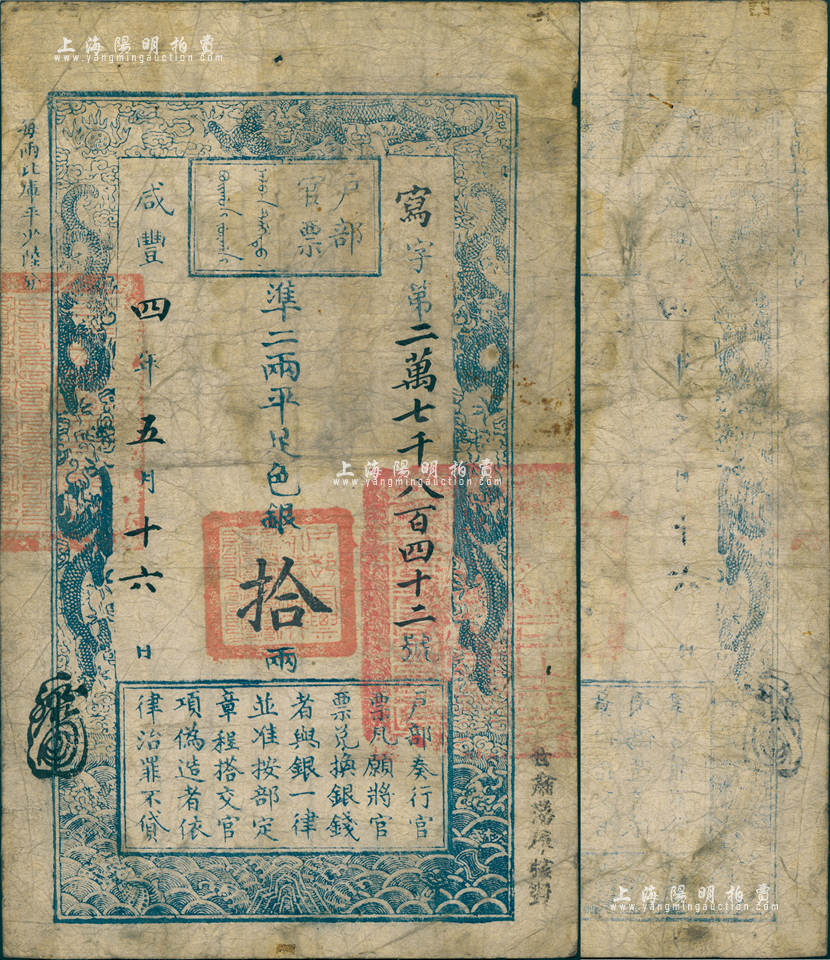 上海陽明拍賣
www.yangmingauction.com
每兩比庫平少陸分
户部
官票
寫字第二萬七千八百四十二號
準二兩平足色銀拾兩
咸豐四年五月十六日
上海陽明拍賣
www.yangmingauction.com
户部奏行官
票凡願將官
票兑換銀錢
者與銀一律
並准按部定
章程搭交官
項偽造者依
律治罪不貸
上海陽明拍賣
www.yangmingauction.com